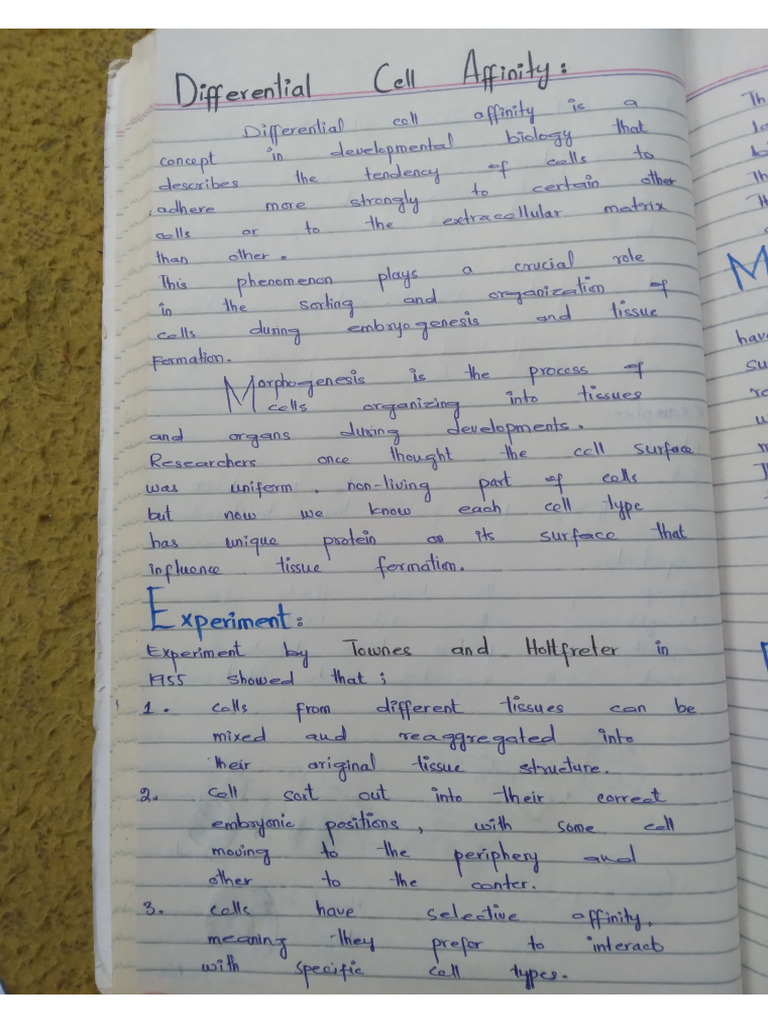 Differential Cell Affinity:
Differential cell affinity is a
concept in developmental biology that
describes the tendency of cells to
adhere more strongly to certain other
cells or to the extracellular matrix
than other.
This phenomenon plays a crucial role
in the sorting and organization of
cells during embryogenesis and tissue
formation.
Morphogenesis is the process of
cells organizing into tissues
and organs during developments.
Researchers once thought the cell surface
was uniform, non-living part of cells
but now we know each cell type
has unique protein on its surface that
influence tissue formation.
Experiment:
Experiment by Townes and Holtfreter in
1955 showed that;
1. cells from different tissues can be
mixed and reaggregated into
their original tissue structure.
2. Cell sort out into their correct
embryonic positions, with some cell
moving to the periphery and
other to the center.
3. cells have selective affinity,
meaning they prefer to interact
with specific cell types.
Th
Th
Th
M
have
su